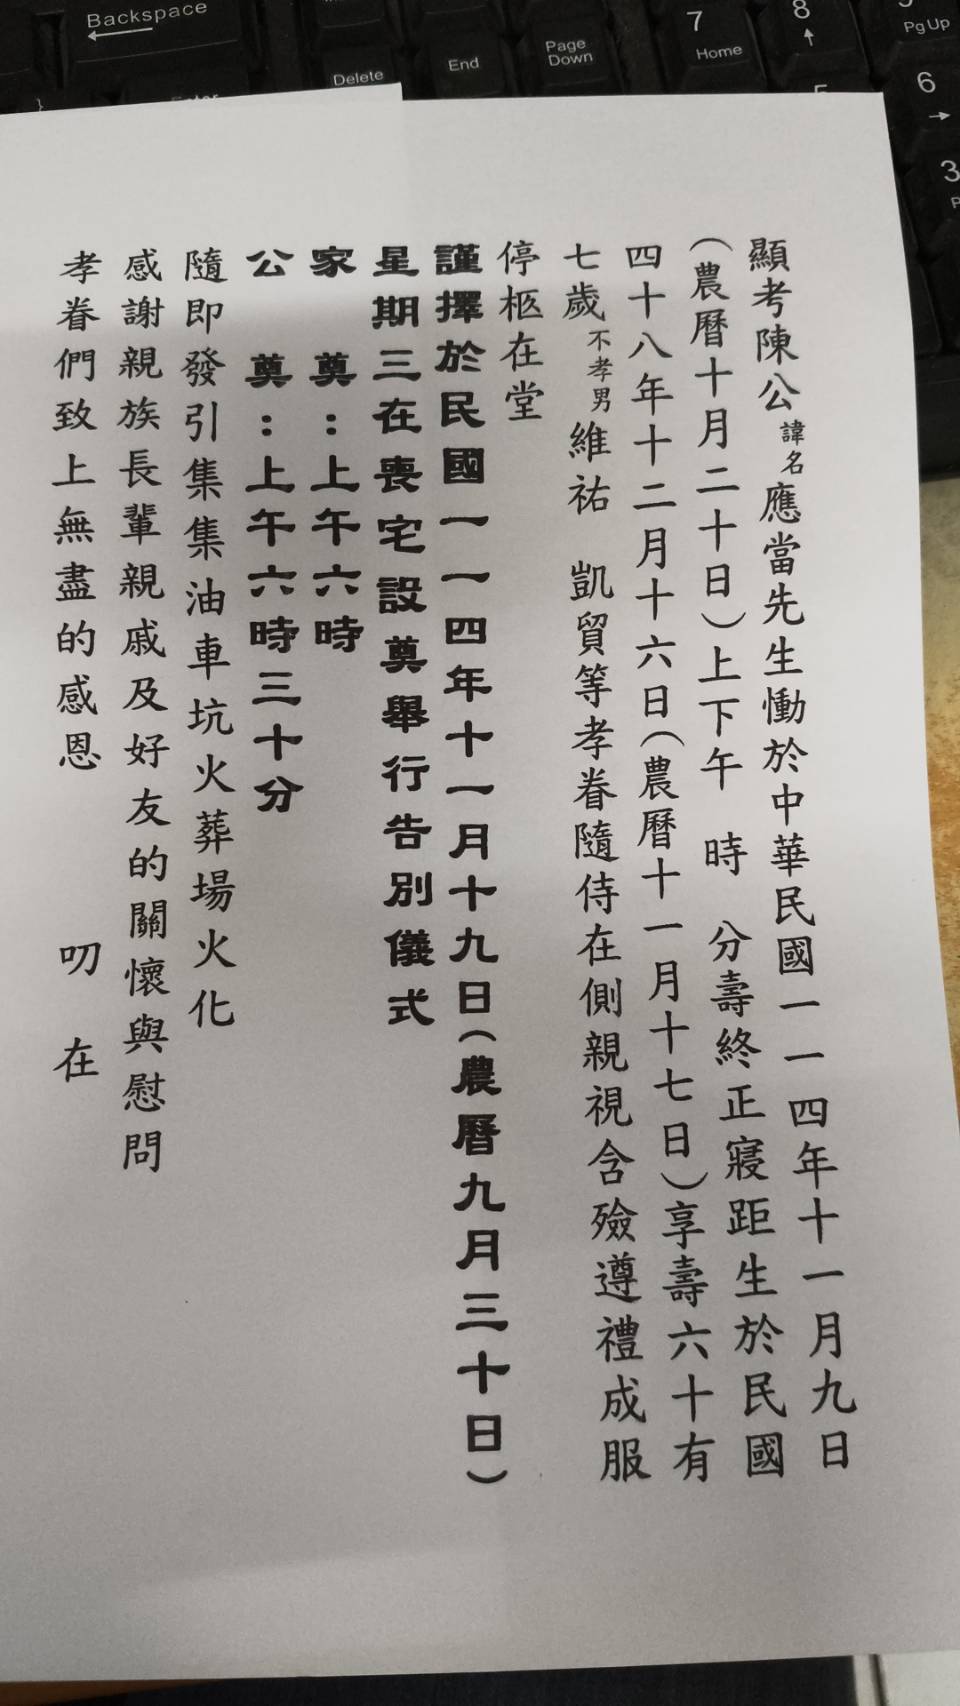 Backspace
Enter
Delete
End
Page Down
7 Home
8
Pg Up
5
6
3
}
顯考陳公諱名應當先生慟於中華民國一一四年十一月九日
(農曆十月二十日)上下午　時　分壽終正寢距生於民國
四十八年十二月十六日(農曆十一月十七日)享壽六十有
七歲不孝男維祐　凱貿等孝眷隨侍在側親視含殮遵禮成服
停柩在堂
謹擇於民國一一四年十一月十九日(農曆九月三十日)
星期三在喪宅設奠舉行告別儀式
家　奠：上午六時
公　奠：上午六時三十分
隨即發引集集油車坑火葬場火化
感謝親族長輩親戚及好友的關懷與慰問
孝眷們致上無盡的感恩　　叨　在